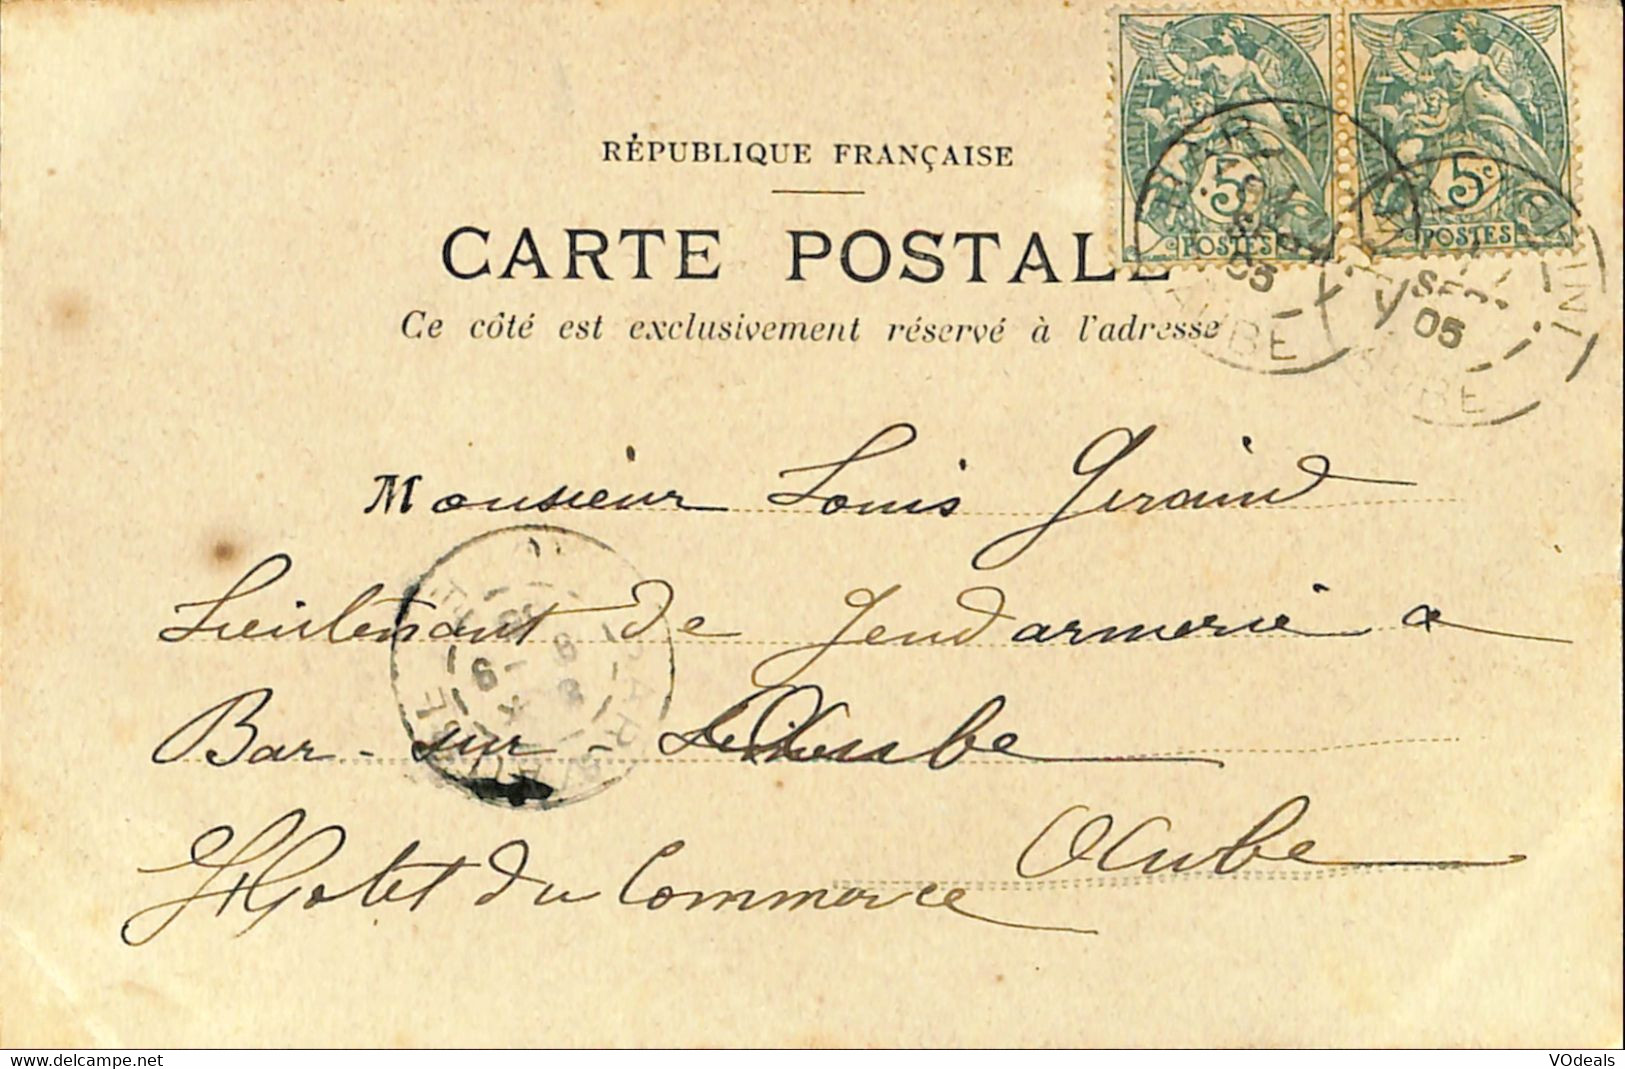 RÉPUBLIQUE FRANÇAISE
CARTE POSTALE
Ce côté est exclusivement réservé à l'adresse
5c
POSTES
5c
POSTES
BAR
05
AUBE
05
AUBE
Monsieur Louis Geraind
Lieutenant de Gendarmerie a
Bar-sur-Aube
Aube
Hotel du Commerce
delcampe.net
VOdeals